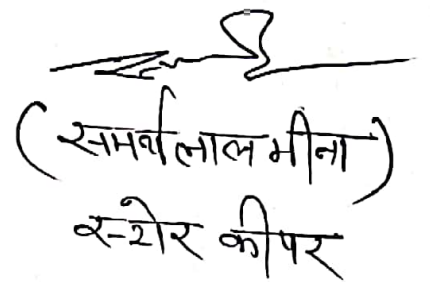 (समर्थलाल मीना)
स्टोर कीपर